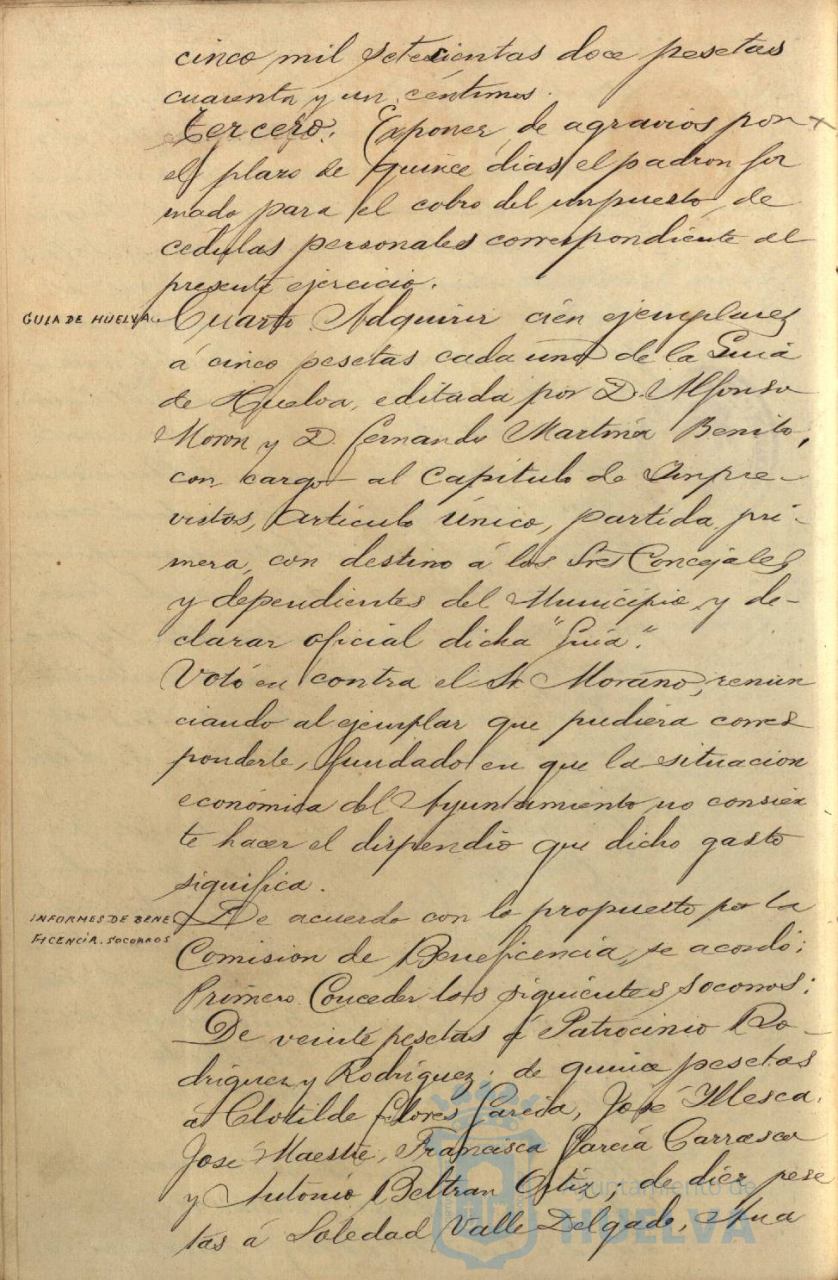 cinco mil setecientas doce pesetas
cuarenta y un céntimos.
Tercero. Exponer de agravios por
el plazo de quince dias el padron for
mado para el cobro del impuesto de
cédulas personales correspondiente al
presente ejercicio.
GUIA DE HUELVA.
Cuarto. Adquirir cien ejemplares
á cinco pesetas cada uno de la Guia
de Huelva, editada por D. Alfonso
Moron y D. Fernando Martinez Benito,
con cargo al Capitulo de Impre-
vistos, Articulo único, partida pri-
mera, con destino á los Sres Concejales
y dependientes del Municipio y de-
clarar oficial dicha "Guia".
Votó en contra el Sr Morano, renun
ciando al ejemplar que pudiera corres
ponderle, fundado en que la situacion
económica del Ayuntamiento no consien
te hacer el dispendio que dicho gasto
significa.
INFORMES DE BENE
FICENCIA. SOCORROS
De acuerdo con lo propuesto por la
Comision de Beneficencia, se acordó:
Primero. Conceder los siguientes socorros:
De veinte pesetas á Patrocinio Ro-
driguez y Rodríguez; de quince pesetas
á Clotilde Flores Garcia, José Yllesca.
José Maestre, Francisca Garcia Carrasco
y Antonio Beltran Ortiz; de diez pese
tas á Soledad Valle Delgado, Ana
Ayuntamiento de
HUELVA